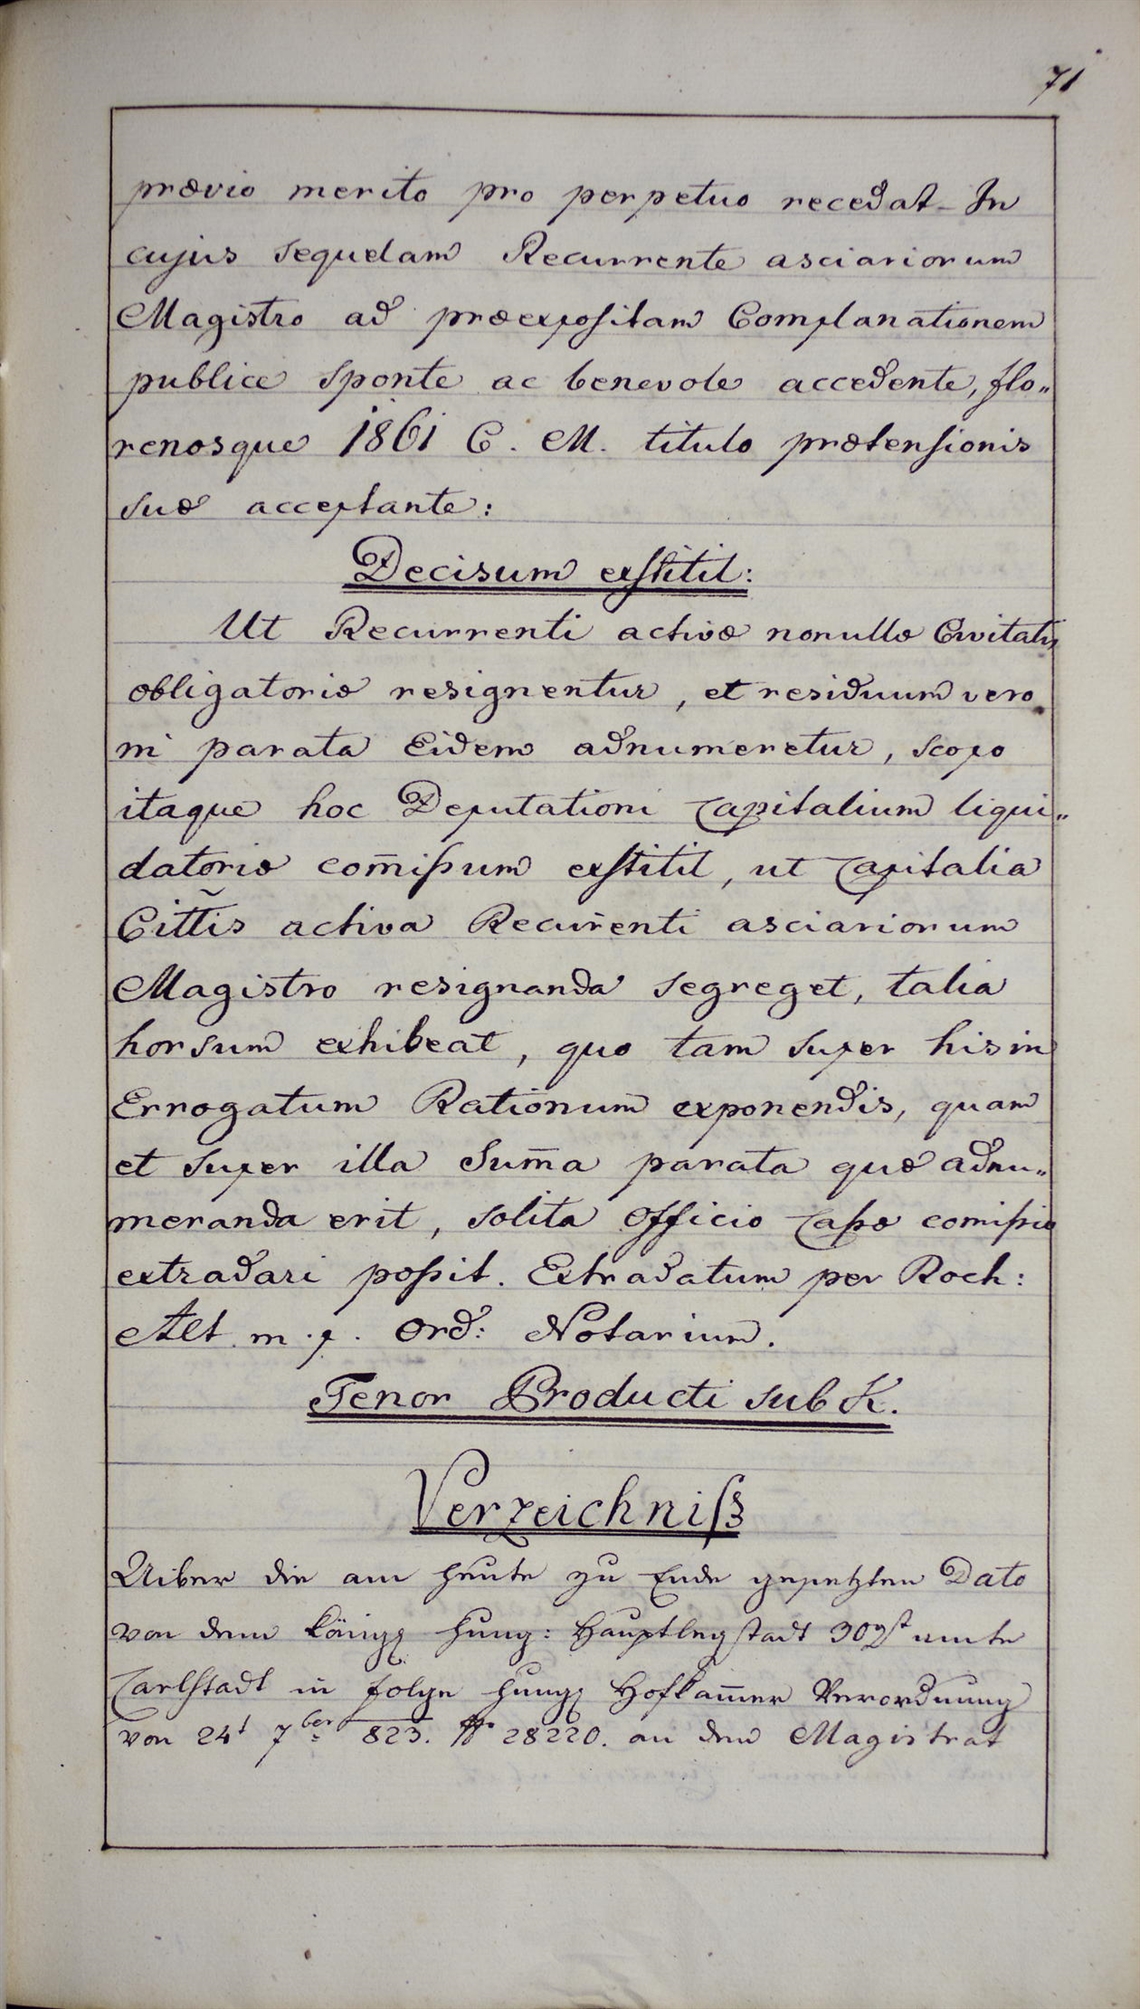 71
prævio merito pro perpetuo recedat – In
cujus sequelam Recurrente asciariorum
Magistro ad præexpositam Complanationem
publice sponte ac benevole accedente, flo„
renosque 1861 C. M. titulo prætensionis
suæ acceptante:
Decisum exstitit:
Ut Recurrenti activæ nonullæ Civitatis
obligatoriæ resignentur, et residuum vero
in parata Eidem adnumeretur, scopo
itaque hoc Deputationi Capitalium liqui„
datoriæ com̄issum exstitit, ut Capitalia
Citt̃is activa Recur̄enti asciariorum
Magistro resignanda segreget, talia
horsum exhibeat, quo tam super his in
Errogatum Rationum exponendis, quam
et super illa Sum̄a parata quæ adnu„
meranda erit, solita Officio Cassæ comissio
extradari possit. Extradatum per Roch:
Alt m. p. Ord: Notarium.
Tenor Producti sub K.
Verzeichniß
Uiber die am heute zu Ende gesetzten Dato
von dem königg hung: Hauptlegstadt 30gst amte
Carlstadt in folge hungg Hofkam̄er Verordnung
von 24t 7ber 823. № 28220. an den Magistrat